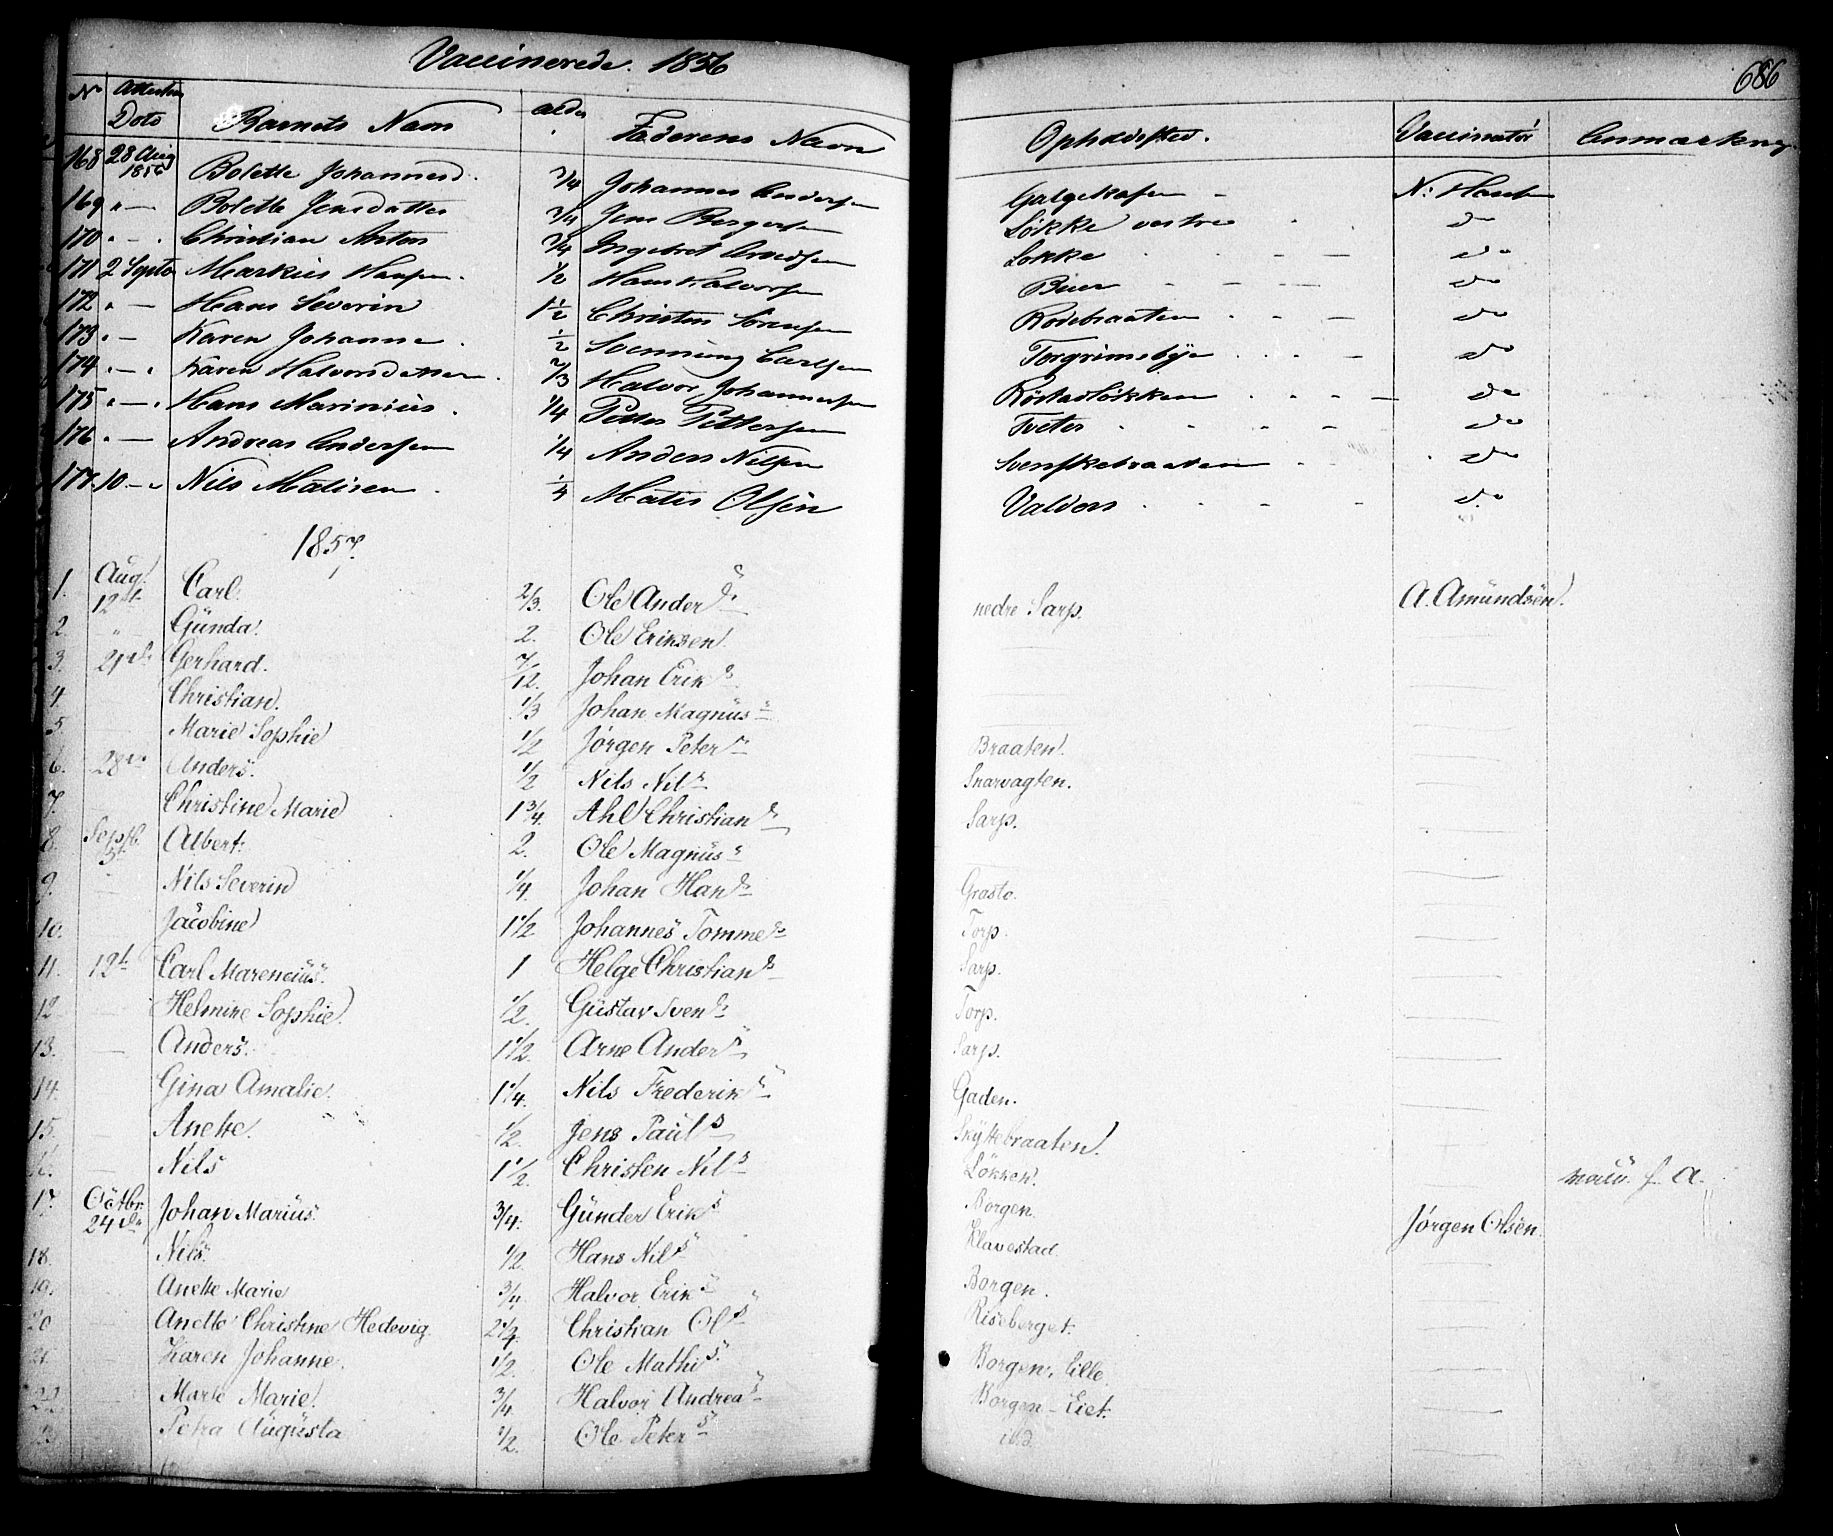 Vaccinerede. 1856
686
No Attestens Dato Barnets Navn alder Faderens Navn Opholdsted. Vaccinatør Anmærkning
168 28 Aug 1856 Bolette Johannesd. 3/4 Johannes Andersen Galgekasen N: Hauk
169 " — Bolette Jensdatter 3/4 Jens Bergersen Løkke vestre do
170 " — Christian Anton 3/4 Ingebret Arnesen Løkke do
171 2 Septb Markus Hansen. 1/2 Hans Halvorsen do
172 " — Hans Severin 1 1/2 Christen Sørensen Rødebraaten do
173 " — Karen Johanne 1/2 Svenning Carlsen Torgrimsbye do
174 " — Karen Halvorsdatter 2/3 Halvor Johannessen Røstadløkken do
175 " — Hans Marinius. 1/4 Petter Pettersen Tveter do
176 " — Andreas Andersen 1/4 Anders Nilsen Svenskebraaten do
177. 10 — " Nils Matisen 1/4 Matis Olsen Valdors do
1857.
1. Aug. 12te Carl. 2/3. Ole Anders. nedre Sarp. A. Amundsen.
2. " Gunda. 2. Ole Eriksen. —
3. 21de Gerhard. 7/12. Johan Eriks. —
4. Christian. 1/3 Johan Magnus. —
5 Marie Sophie 1/2 Jørgen Peters. Braaten. —
6. 28de Anders. 1/2 Nils Nils. Snarvagten. —
7. Christine Marie 1 3/4. Ahl Christians. Sarp. —
8. Septb. 5te Albert. 2. Ole Magnus. — —
9. — Nils Severin 1/4. Johan Hans. Grøsto. —
10. Jacobine 1 1/2 Johannes Tommes. Torp. —
11. 12te Carl Marencius. 1 Helge Christians. Sarp. —
12 — Helmine Sophie. 1/2. Gustav Svens. Torp. —
13. — Anders. 1 1/2. Arne Anders. Sarp. —
14. Gina Amalie. 1 1/4. Nils Frederiks. Gaden. —
15. — Anette. 1/2. Jens Pauls. Skyttebraaten. —
16. — Nils 1 1/2. Christen Nils. Løkken. —
17. Octbr. 24de Johan Marius. 3/4. Gunder Eriks. Borgen. Jørgen Olsen.
18. Nils. 1/2. Hans Nils. Klavestad. —
19. Anette Marie 3/4 Halvor Eriks. Borgen. —
20 Anette Christine Hedevig. 2 1/4. Christian Ols. Riseberget. —
21. Karen Johanne. 1/2. Ole Mathis. Borgen, Lille. —
22. Marte Marie. 3/4. Halvor Andreas. Borgen —
23. Petra Augusta 1/2. Ole Peters. ibid. —